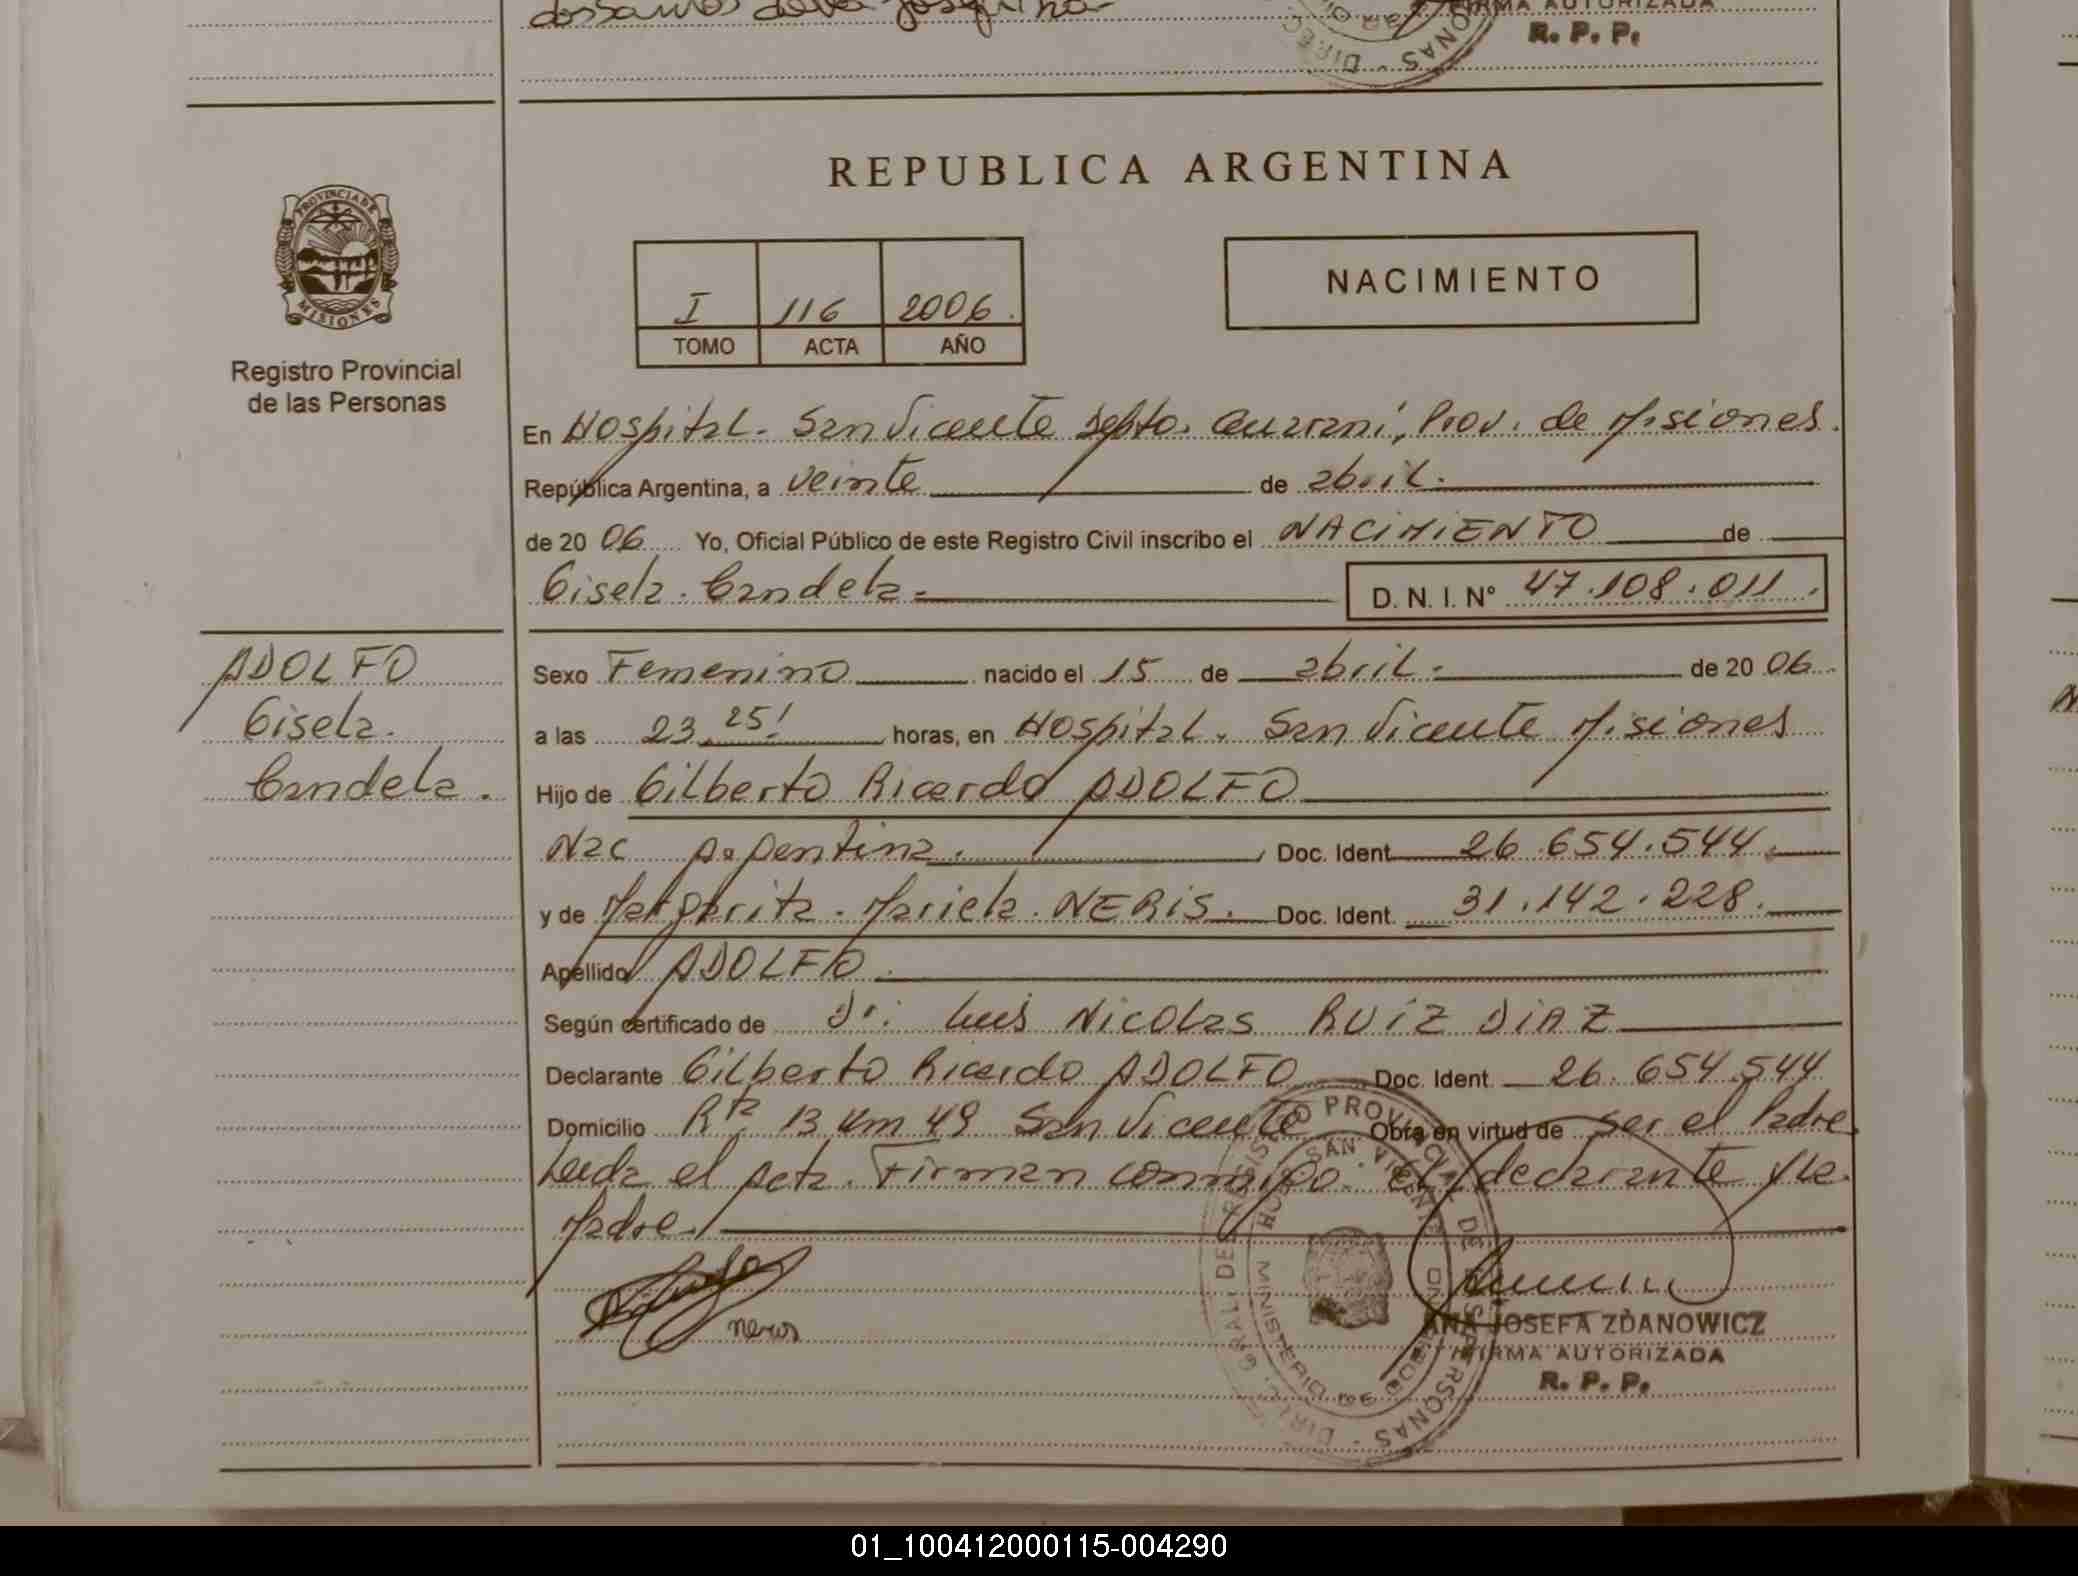 FIRMA AUTORIZADA
R. P. P.
REPUBLICA ARGENTINA
PROVINCIA DE
MISIONES
Registro Provincial
de las Personas
I 116 2006.
TOMO ACTA AÑO
NACIMIENTO
En Hospital. San Vicente Depto. Guarani, Prov. de Misiones.
República Argentina, a veinte de abril.
de 20 06 Yo, Oficial Público de este Registro Civil inscribo el NACIMIENTO de
Gisela. Candela. D. N. I. Nº 47.108.011.
ADOLFO
Gisela.
Candela.
Sexo Femenino nacido el 15 de abril. de 20 06
a las 23 25' horas, en Hospital. San Vicente Misiones
Hijo de Gilberto Ricardo ADOLFO
Nac Argentina. Doc. Ident. 26.654.544.
y de Margarita. Mariela. NERIS. Doc. Ident. 31.142.228.
Apellido ADOLFO.
Según certificado de Dr: Luis Nicolas RUIZ DIAZ
Declarante Gilberto Ricardo ADOLFO Doc. Ident. 26.654.544
Domicilio Rta 13 Km 49 San Vicente Obra en virtud de ser el Padre
Leida el Acta. Firman conmigo. el declarante y la
Madre.
Neris
ANA JOSEFA ZDANOWICZ
FIRMA AUTORIZADA
R. P. P.
DIR. GRAL. DEL REGISTRO PROVINCIAL DE LAS PERSONAS
HOSP. SAN VICENTE
MINISTERIO DE GOBIERNO
01_100412000115-004290